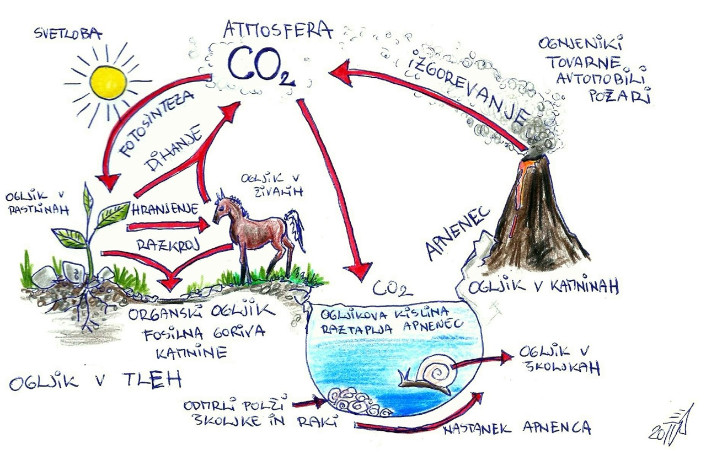 SVETLOBA
ATMOSFERA
CO₂
OGNJENIKI
TOVARNE
AVTOMOBILI
POŽARI
IZGOREVANJE
FOTOSINTEZA
DIHANJE
OGLJIK V
RASTLINAH
HRANJENJE
RAZKROJ
OGLJIK V
ŽIVALIH
APNENEC
OGLJIK V KAMNINAH
ORGANSKI OGLJIK
FOSILNA GORIVA
KAMNINE
OGLJIK V TLEH
CO₂
OGLJIKOVA KISLINA
RAZTAPLJA APNENEC
OGLJIK V
ŠKOLJKAH
ODMRLI POLŽI
ŠKOLJKE IN RAKI
NASTANEK APNENCA